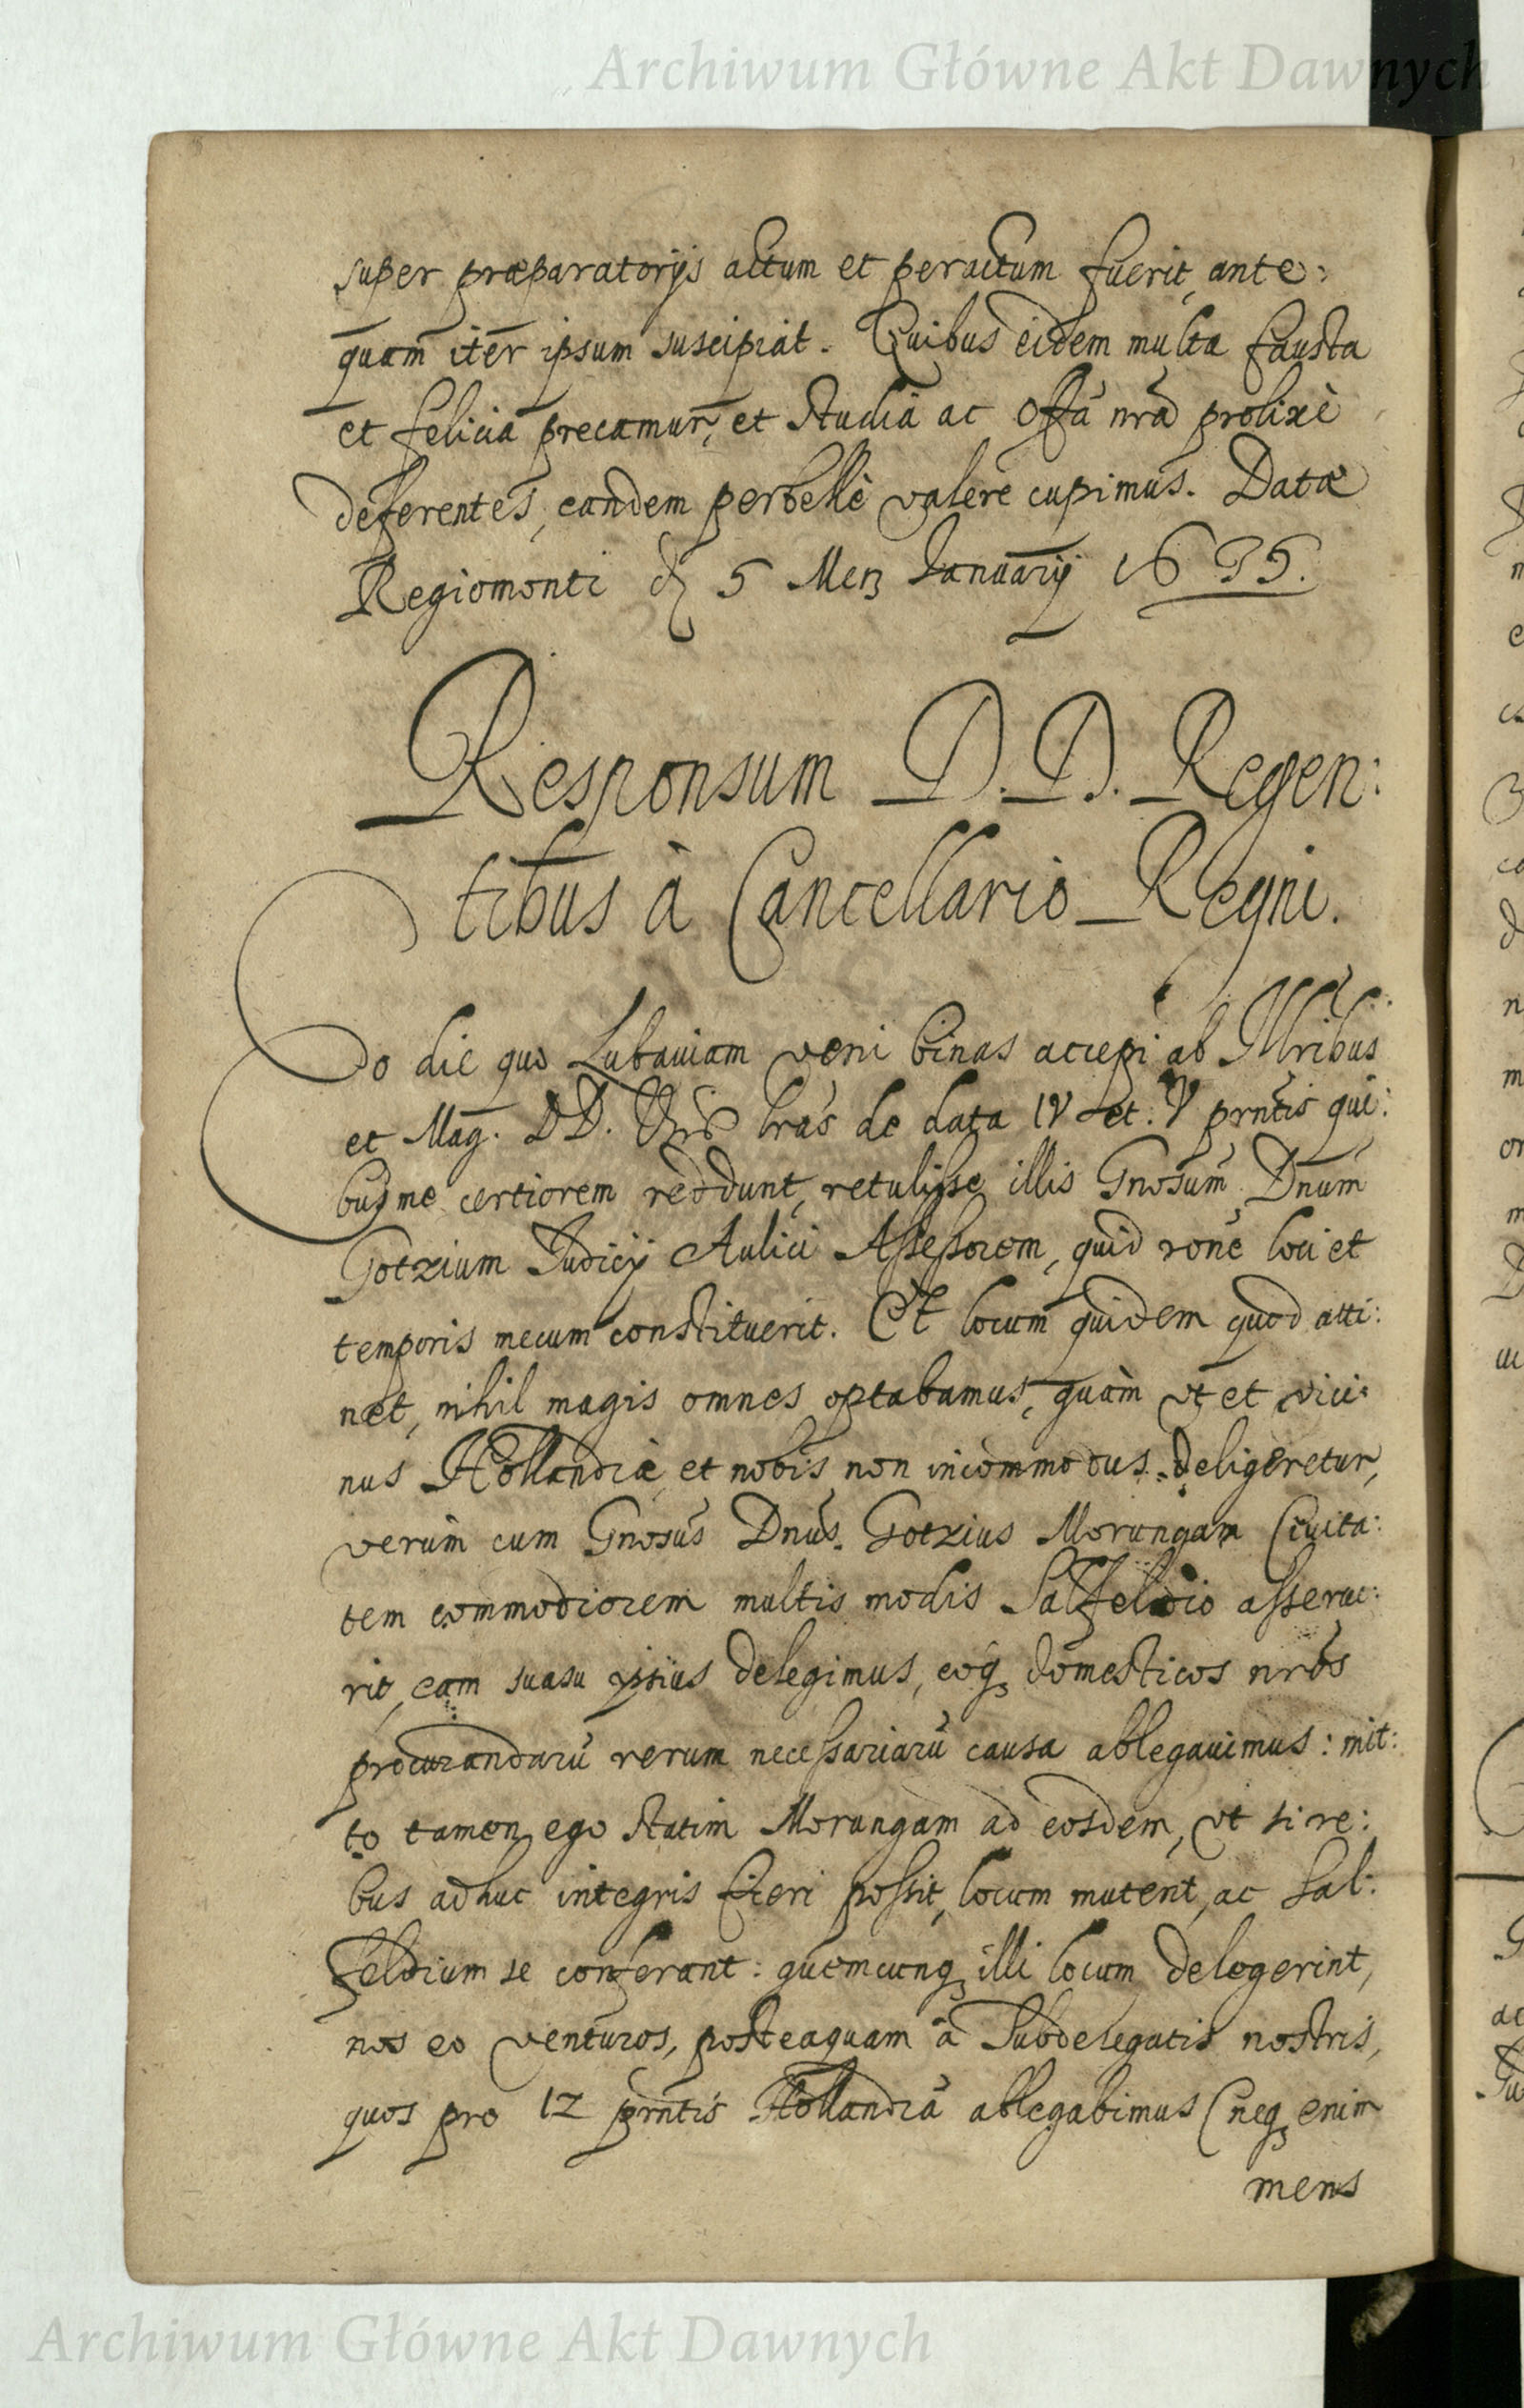 Archiwum Główne Akt Dawnych
super præparatorijs actum et peractum fuerit, ante:
quam iter ipsum suscipiat. Quibus eidem multa fausta
et felicia precamur, et studia ac Offa nra prolixè
deferentes, eandem perbellè valere cupimus. Datæ
Regiomonti d 5 Mens Januarij 1635.
Responsum D. D. Regen:
tibus à Cancellario Regni.
Eo die quo Lubaviam veni binas accepi ab Illribus
et Mag. DD. Vris lras de data IV et V prntis qui:
bus me certiorem reddunt, retulisse illis Gnosum Dnum
Gotzium Judicij Aulici Assessorem, quid rone loci et
temporis mecum constituerit. Et locum quidem quod atti:
net, nihil magis omnes optabamus, quàm vt et vici:
nus Hollandiæ et nobis non incommodus deligeretur,
verùm cum Gnosus Dnus Gotzius Morungam Civita:
tem commodiorem multis modis Salfeldio asserue:
rit, eam suasu ipsius delegimus, eoq domesticos nros
procurandarū rerum necessariarū causa ablegavimus: mit:
to tamen ego statim Morungam ad eosdem, vt si re:
bus adhuc integris fieri possit, locum mutent, ac Sal:
feldium se conferant: quemcunq illi locum delegerint,
nos eo venturos, posteaquam à Subdelegatis nostris,
quos pro 12 prntis Hollandiā ablegabimus (neq enim
mens
Archiwum Główne Akt Dawnych